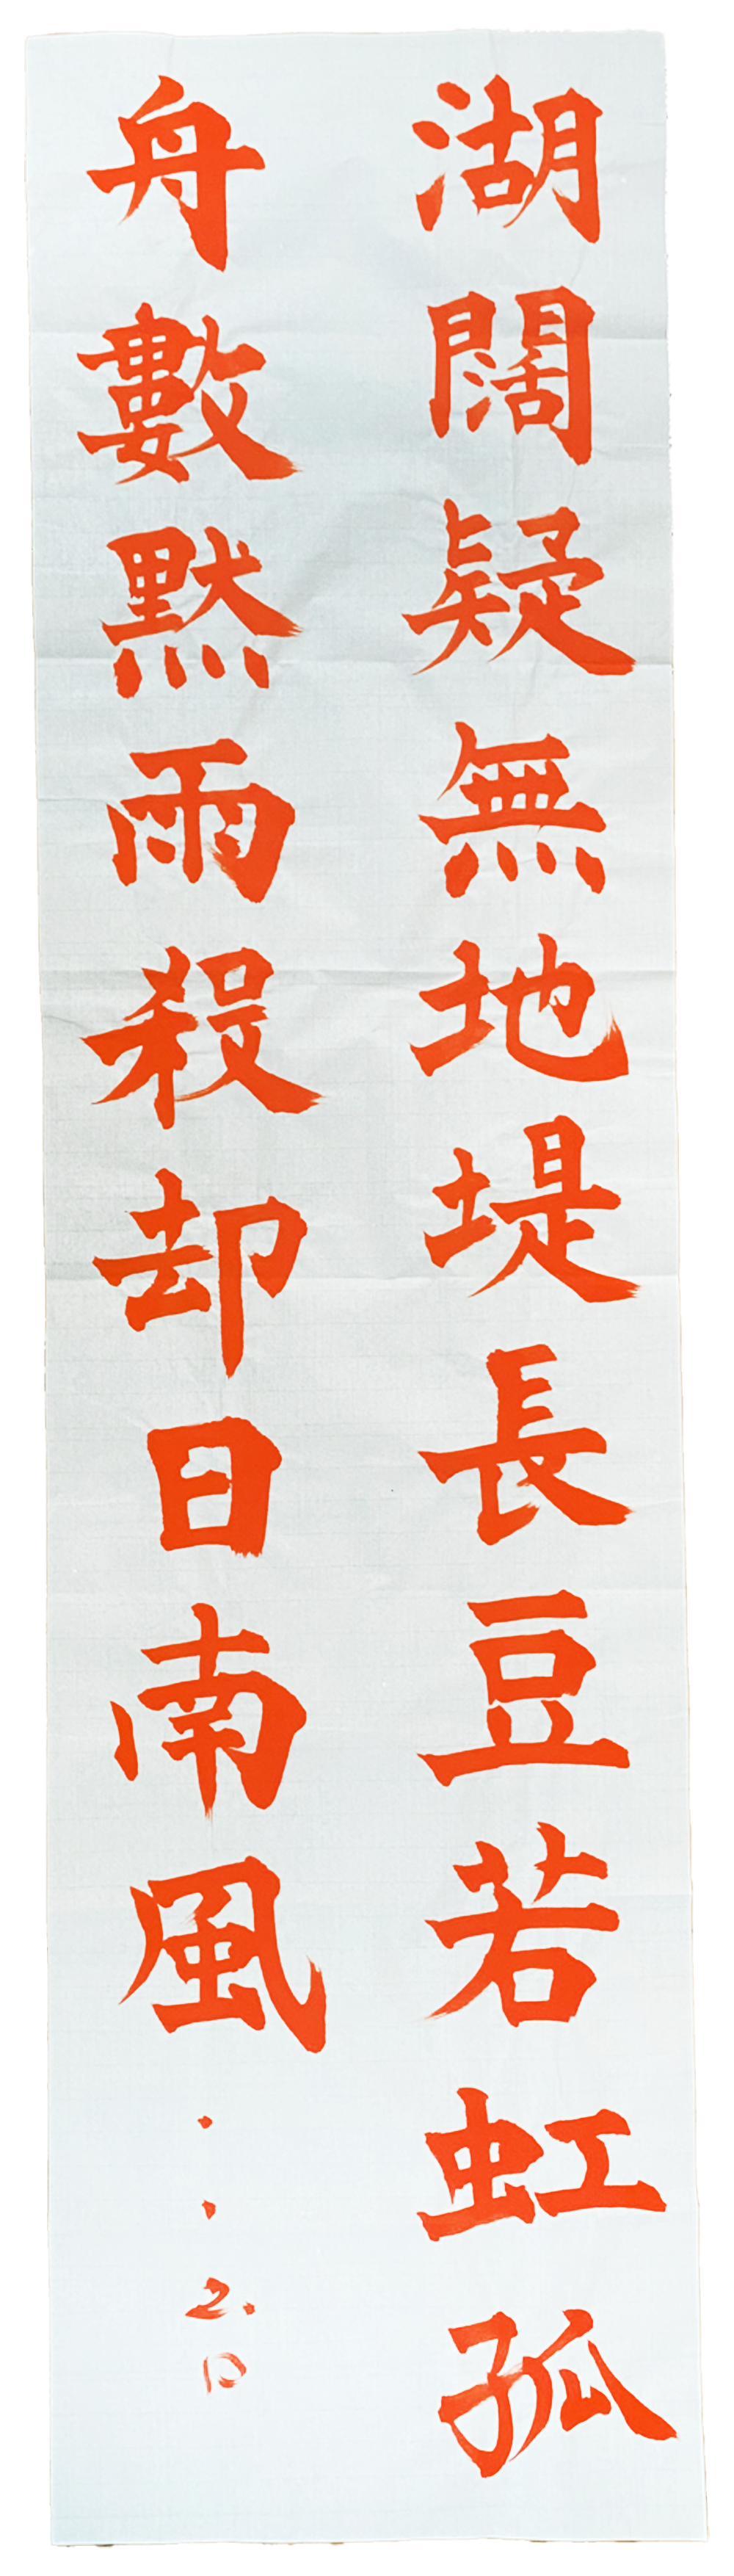 湖闊疑無地堤長豆若虹孤
舟數㸃雨殺却日南風